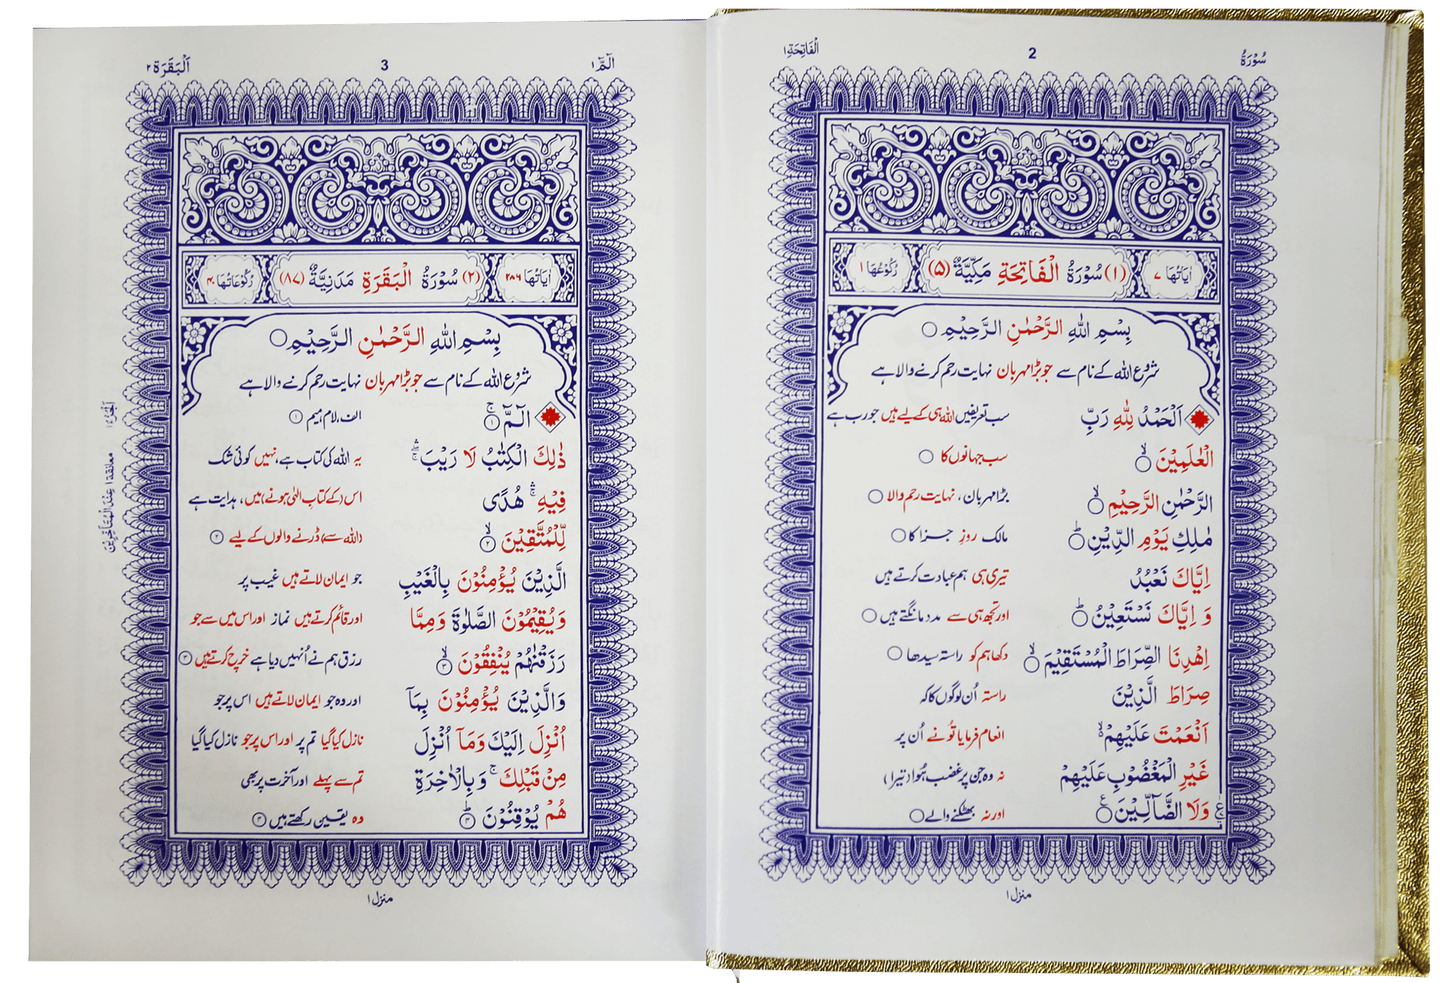 سُوْرَةُ 2 الْفَاتِحَةِ ١
اٰيَاتُهَا ٧ (١) سُوْرَةُ الْفَاتِحَةِ مَكِّيَّةٌ (۵) رُكُوْعُهَا ١
بِسْمِ اللّٰهِ الرَّحْمٰنِ الرَّحِيْمِ
شروع اللہ کے نام سے جو بڑا مہربان نہایت رحم کرنے والا ہے
اَلْحَمْدُ لِلّٰهِ رَبِّ سب تعریفیں اللہ ہی کے لیے ہیں جو رب ہے
الْعٰلَمِيْنَ سب جہانوں کا
الرَّحْمٰنِ الرَّحِيْمِ بڑا مہربان، نہایت رحم والا
مٰلِكِ يَوْمِ الدِّيْنِ مالک روزِ جزا کا
اِيَّاكَ نَعْبُدُ تیری ہی ہم عبادت کرتے ہیں
وَ اِيَّاكَ نَسْتَعِيْنُ اور تجھ ہی سے مدد مانگتے ہیں
اِهْدِنَا الصِّرَاطَ الْمُسْتَقِيْمَ دکھا ہم کو راستہ سیدھا
صِرَاطَ الَّذِيْنَ راستہ اُن لوگوں کا کہ
اَنْعَمْتَ عَلَيْهِمْ انعام فرمایا تُو نے اُن پر
غَيْرِ الْمَغْضُوْبِ عَلَيْهِمْ نہ وہ جن پر غضب ہُوا (تیرا)
وَلَا الضَّآلِّيْنَ اور نہ بھٹکنے والے
منزل ١
الٓمّٓ ١ 3 اَلْبَقَرَة ٢
اٰيَاتُهَا ٢٨٦ (٢) سُوْرَةُ الْبَقَرَةِ مَدَنِيَّةٌ (٨٧) رُكُوْعَاتُهَا ۴۰
بِسْمِ اللّٰهِ الرَّحْمٰنِ الرَّحِيْمِ
شروع اللہ کے نام سے جو بڑا مہربان نہایت رحم کرنے والا ہے
الٓمّٓ ١ الف، لام، میم ١
ذٰلِكَ الْكِتٰبُ لَا رَيْبَ یہ اللہ کی کتاب ہے، نہیں کوئی شک
فِيْهِ هُدًى اس (کے کتاب الٰہی ہونے) میں، ہدایت ہے
لِّلْمُتَّقِيْنَ ٢ (اللہ سے) ڈرنے والوں کے لیے ٢
الَّذِيْنَ يُؤْمِنُوْنَ بِالْغَيْبِ جو ایمان لاتے ہیں غیب پر
وَيُقِيْمُوْنَ الصَّلٰوةَ وَمِمَّا اور قائم کرتے ہیں نماز اور اس میں سے جو
رَزَقْنٰهُمْ يُنْفِقُوْنَ ٣ رزق ہم نے اُنہیں دیا ہے خرچ کرتے ہیں ٣
وَالَّذِيْنَ يُؤْمِنُوْنَ بِمَآ اور وہ جو ایمان لاتے ہیں اس پر جو
اُنْزِلَ اِلَيْكَ وَمَآ اُنْزِلَ نازل کیا گیا تم پر اور اس پر جو نازل کیا گیا
مِنْ قَبْلِكَ وَبِالْاٰخِرَةِ تم سے پہلے اور آخرت پر بھی
هُمْ يُوْقِنُوْنَ ۴ وہ یقین رکھتے ہیں ۴
منزل ١